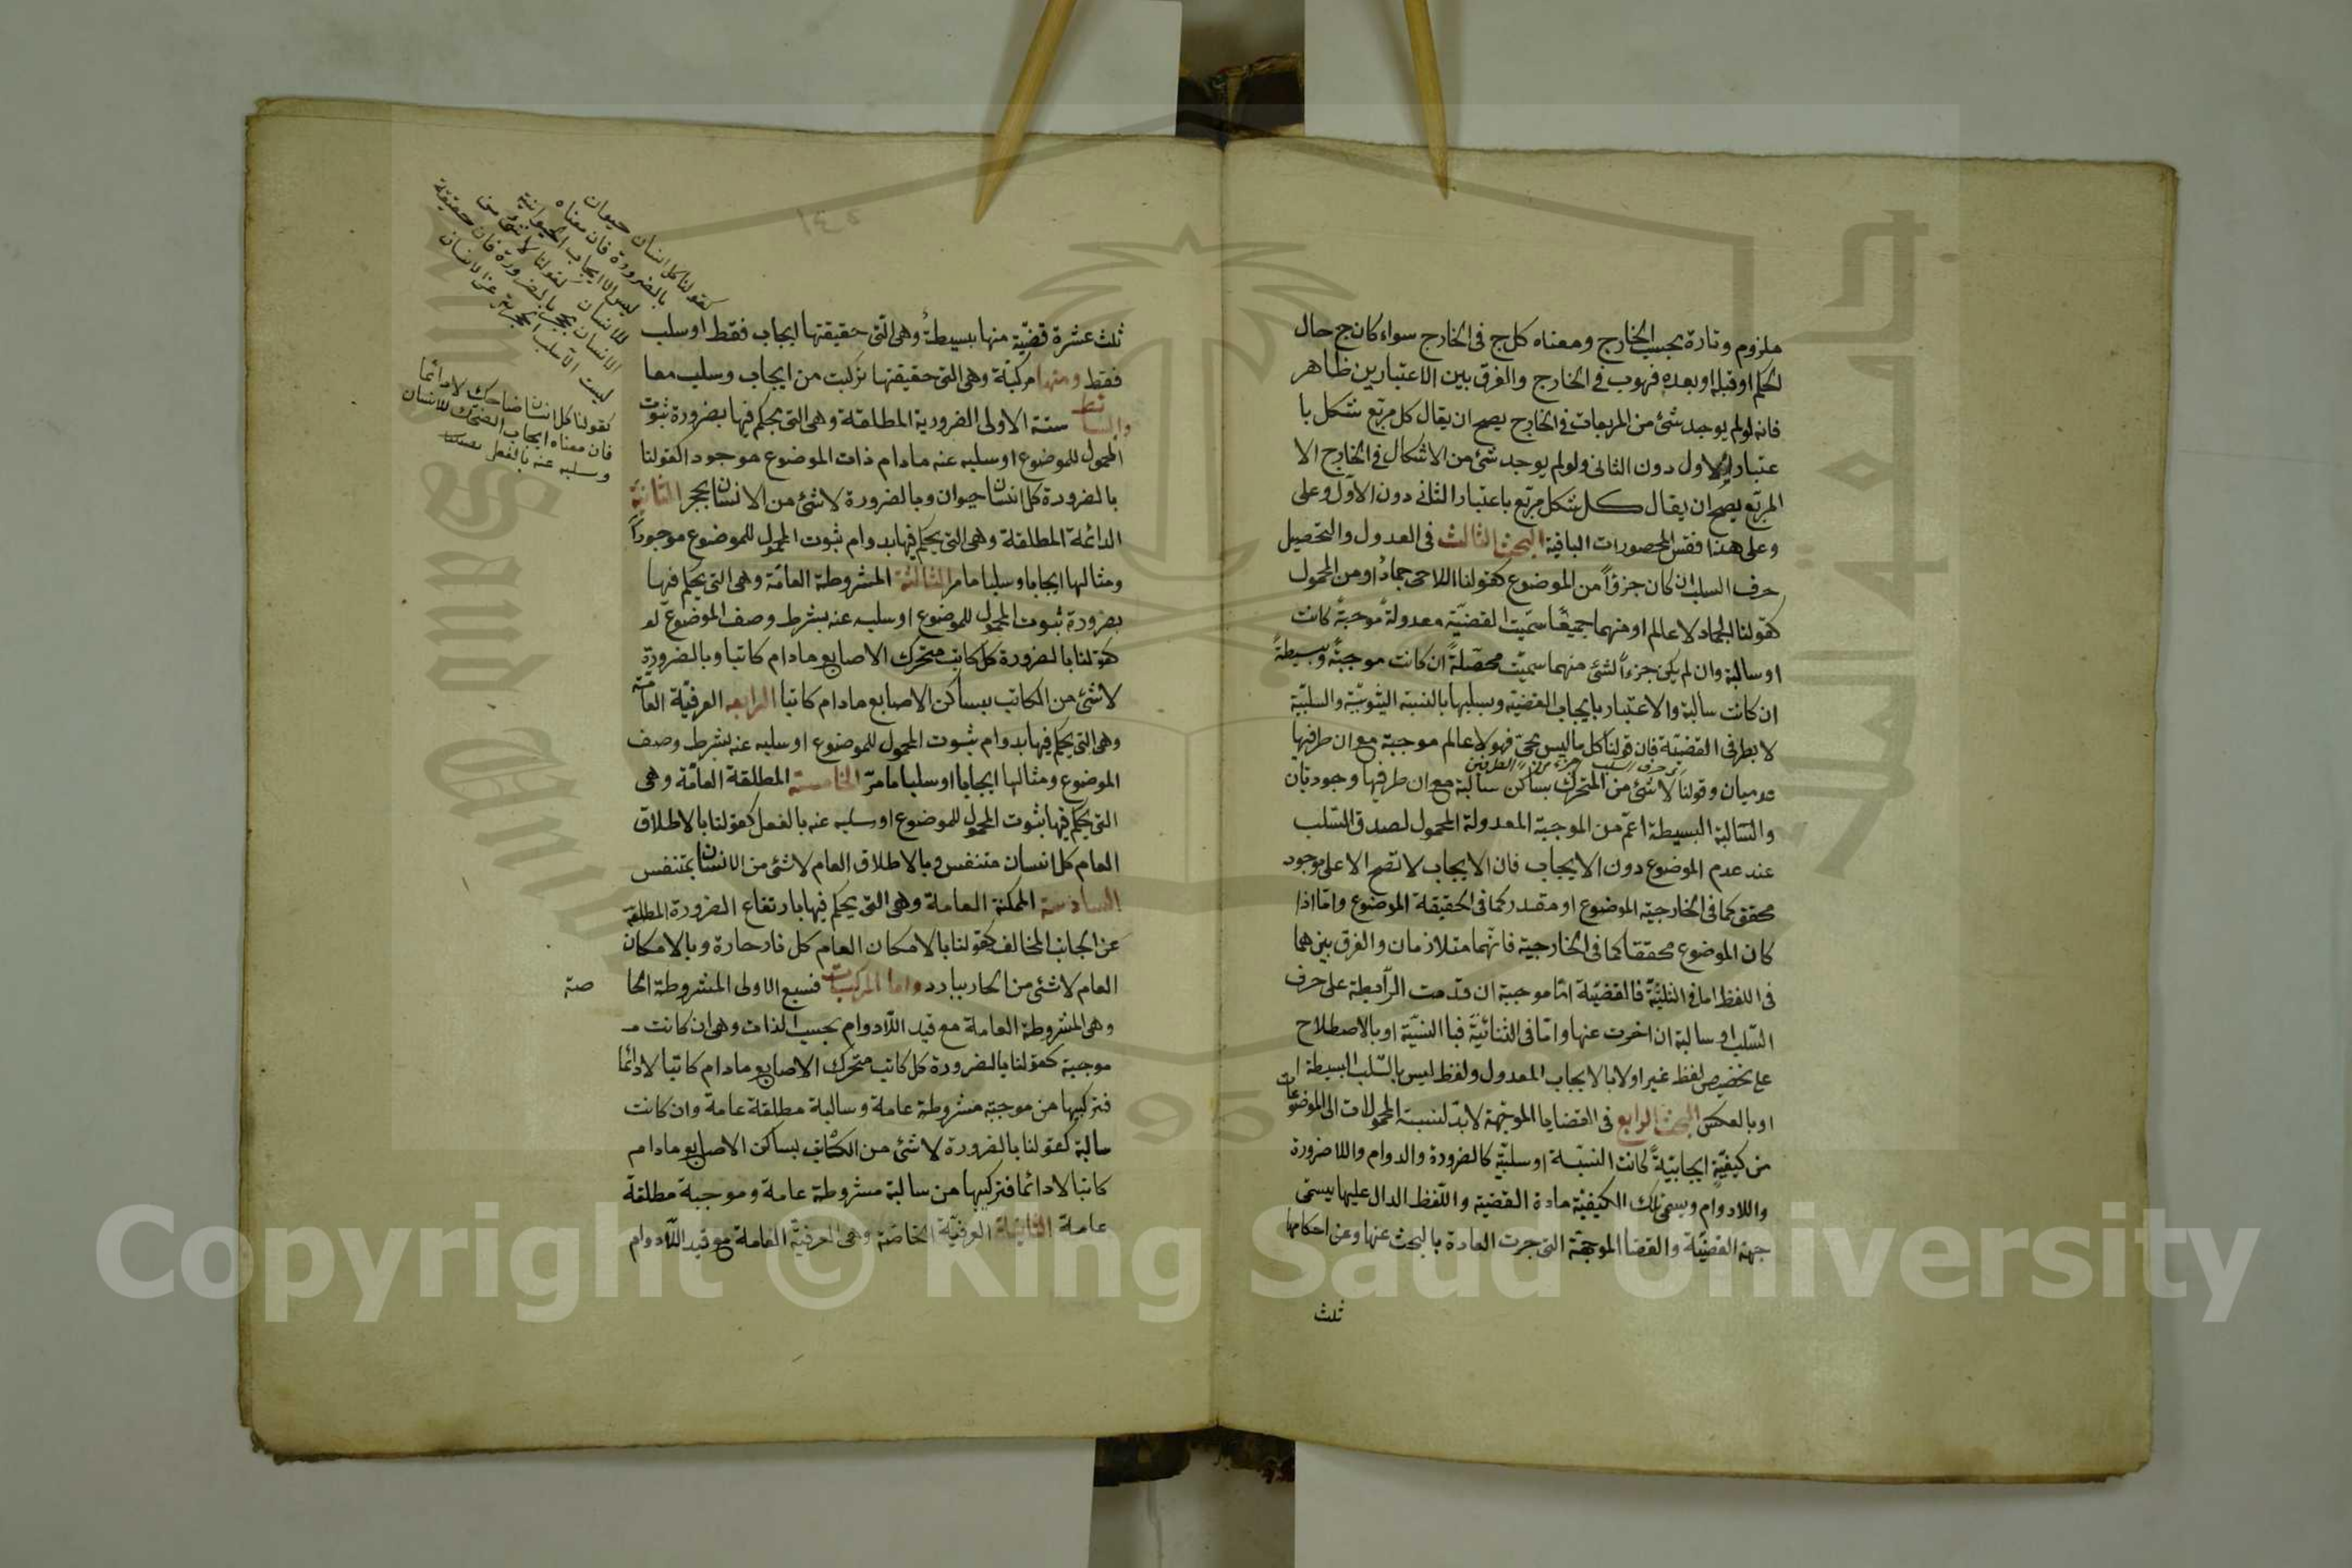 ملزوم وتارة بحسب الخارج ومعناه كل ج فى الخارج سواء كان ج حال
الحكم او قبله او بعده فهو ب فى الخارج والفرق بين الاعتبارين ظاهر
فانه لو لم يوجد شئ من المربعات فى الخارج يصح ان يقال كل مربع شكل با
عتبار الاول دون الثانى ولو لم يوجد شئ من الاشكال فى الخارج الا
المربع يصح ان يقال كل شكل مربع باعتبار الثانى دون الاول وعلى
وعلى هذا فقس المحصورات الباقية البحث الثالث فى العدول والتحصيل
حرف السلب ان كان جزؤاً من الموضوع كقولنا اللاحى جماد او من المحمول
كقولنا الجماد لا عالم او منهما جميعًا سمّيت القضيّة معدولة موجبة كانت
او سالبة وان لم يكن جزءاً لشئ منهما سميّت محصّلةً ان كانت موجبةً وبسيطةً
ان كانت سالبة والاعتبار بايجاب القضية وسلبها بالنسبة الثبوتيّة والسلبيّة
لا بطرفى القضيّة فان قولنا كل ما ليس بحىّ فهو لا عالم موجبة مع ان طرفيها
حرف السلب جزء من الطرفين
عدميان وقولنا لا شئ من المتحرك بساكن سالبة مع ان طرفيها وجوديان
والسّالبة البسيطة اعمّ من الموجبة المعدولة المحمول لصدق السّلب
عند عدم الموضوع دون الايجاب فان الايجاب لا تصح الا على موجود
محقق كما فى الخارجية الموضوع او مقدر كما فى الحقيقة الموضوع واما اذا
كان الموضوع محققا كما فى الخارجية فانّهما متلازمان والفرق بينهما
فى اللفظ اما فى الثلثيّة فالقضيّة امّا موجبة ان قدّمت الرّابطة على حرف
السّلب او سالبة ان اخرت عنها وامّا فى الثنائيّة فبا النسيّة او بالاصطلاح
على تخصيص لفظ غير او لا بالايجاب المعدول ولفظ ليس بالسّلب البسيطة ا
او بالعكس البحث الرابع فى القضايا الموجّهة لا بدّ لنسبة المحمولات الى الموضوعات
من كيفيّةٍ ايجابيّةً كانت النسبة او سلبيّة كالضرورة والدوام واللاضرورة
واللادوام ويسمّى تلك الكيفيّة مادة القضيّة واللّفظ الدال عليها يسمّى
جهة القضيّة والقضا الموجّهة التى جرت العادة بالبحث عنها وعن احكامها
ثلث
ثلث عشرة قضيّة منها بسيطةٌ وهى الّتى حقيقتها ايجاب فقط او سلب
فقط ومنها مركبة وهى التى حقيقتها تركبت من ايجاب وسلب معا
والبسائط ستة الاولى الضرورية المطلقة وهى التى يحكم فيها بضرورة ثبوت
المحمول للموضوع او سلبه عنه مادام ذات الموضوع موجودا كقولنا
بالضرورة كل انسان حيوان وبالضرورة لا شئ من الانسان بحجر الثانية
الدائمة المطلقة وهى التى يحكم فيها بدوام ثبوت المحمول للموضوع موجوداً
ومثالها ايجابا وسلبا ما مر الثالثة المشروطة العامّة وهى التى يحكم فيها
بضرورة ثبوت المحمول للموضوع او سلبه عنه بشرط وصف الموضوع له
كقولنا بالضرورة كل كاتب متحرك الاصابع مادام كاتبا وبالضرورة
لا شئ من الكاتب بساكن الاصابع مادام كاتبا الرابعه العرفيّة العامّة
وهى التى يحكم فيها بدوام ثبوت المحمول للموضوع او سلبه عنه بشرط وصف
الموضوع ومثالها ايجابا او سلبا ما مرّ الخامسة المطلقة العامّة وهى
التى يحكم فيها بثبوت المحمول للموضوع او سلبه عنه بالفعل كقولنا بالاطلاق
العام كل انسان متنفس وبالاطلاق العام لا شئ من الانسان بمتنفس
السادسة الممكنة العامة وهى التى يحكم فيها بارتفاع الضرورة المطلقة
عن الجانب المخالف كقولنا بالامكان العام كل نار حارة وبالامكان
العام لا شئ من الحار ببارد واما المركبات فسبع الاولى المشروطة الخا
صة
وهى المشروطة العامة مع قيد اللّادوام بحسب الذات وهى ان كانت مـ
موجبة كقولنا بالضرورة كل كاتب متحرك الاصابع مادام كاتبا لا دائما
فتركيبها من موجبة مشروطة عامة وسالبة مطلقة عامة وان كانت
سالبة كقولنا بالضرورة لا شئ من الكاتب بساكن الاصابع مادام
كاتبا لا دائما فتركيبها من سالبة مشروطة عامة وموجبة مطلقة
عامة الثانية العرفيّة الخاصّة وهى العرفيّة العامة مع قيد اللّادوام
كقولنا كل انسان حيوان
بالضرورة فان معناه
ليس الا ايجاب الحيوانية
للانسان كقولنا لا شئ من
الانسان بحجر بالضرورة فان حقيقة
ليست الا سلب الحجرية عن الانسان
كقولنا كل انسان ضاحك لا دائما
فان معناه ايجاب الضحك للانسان
وسلبه عنه بالفعل
Copyright © King Saud University
1957